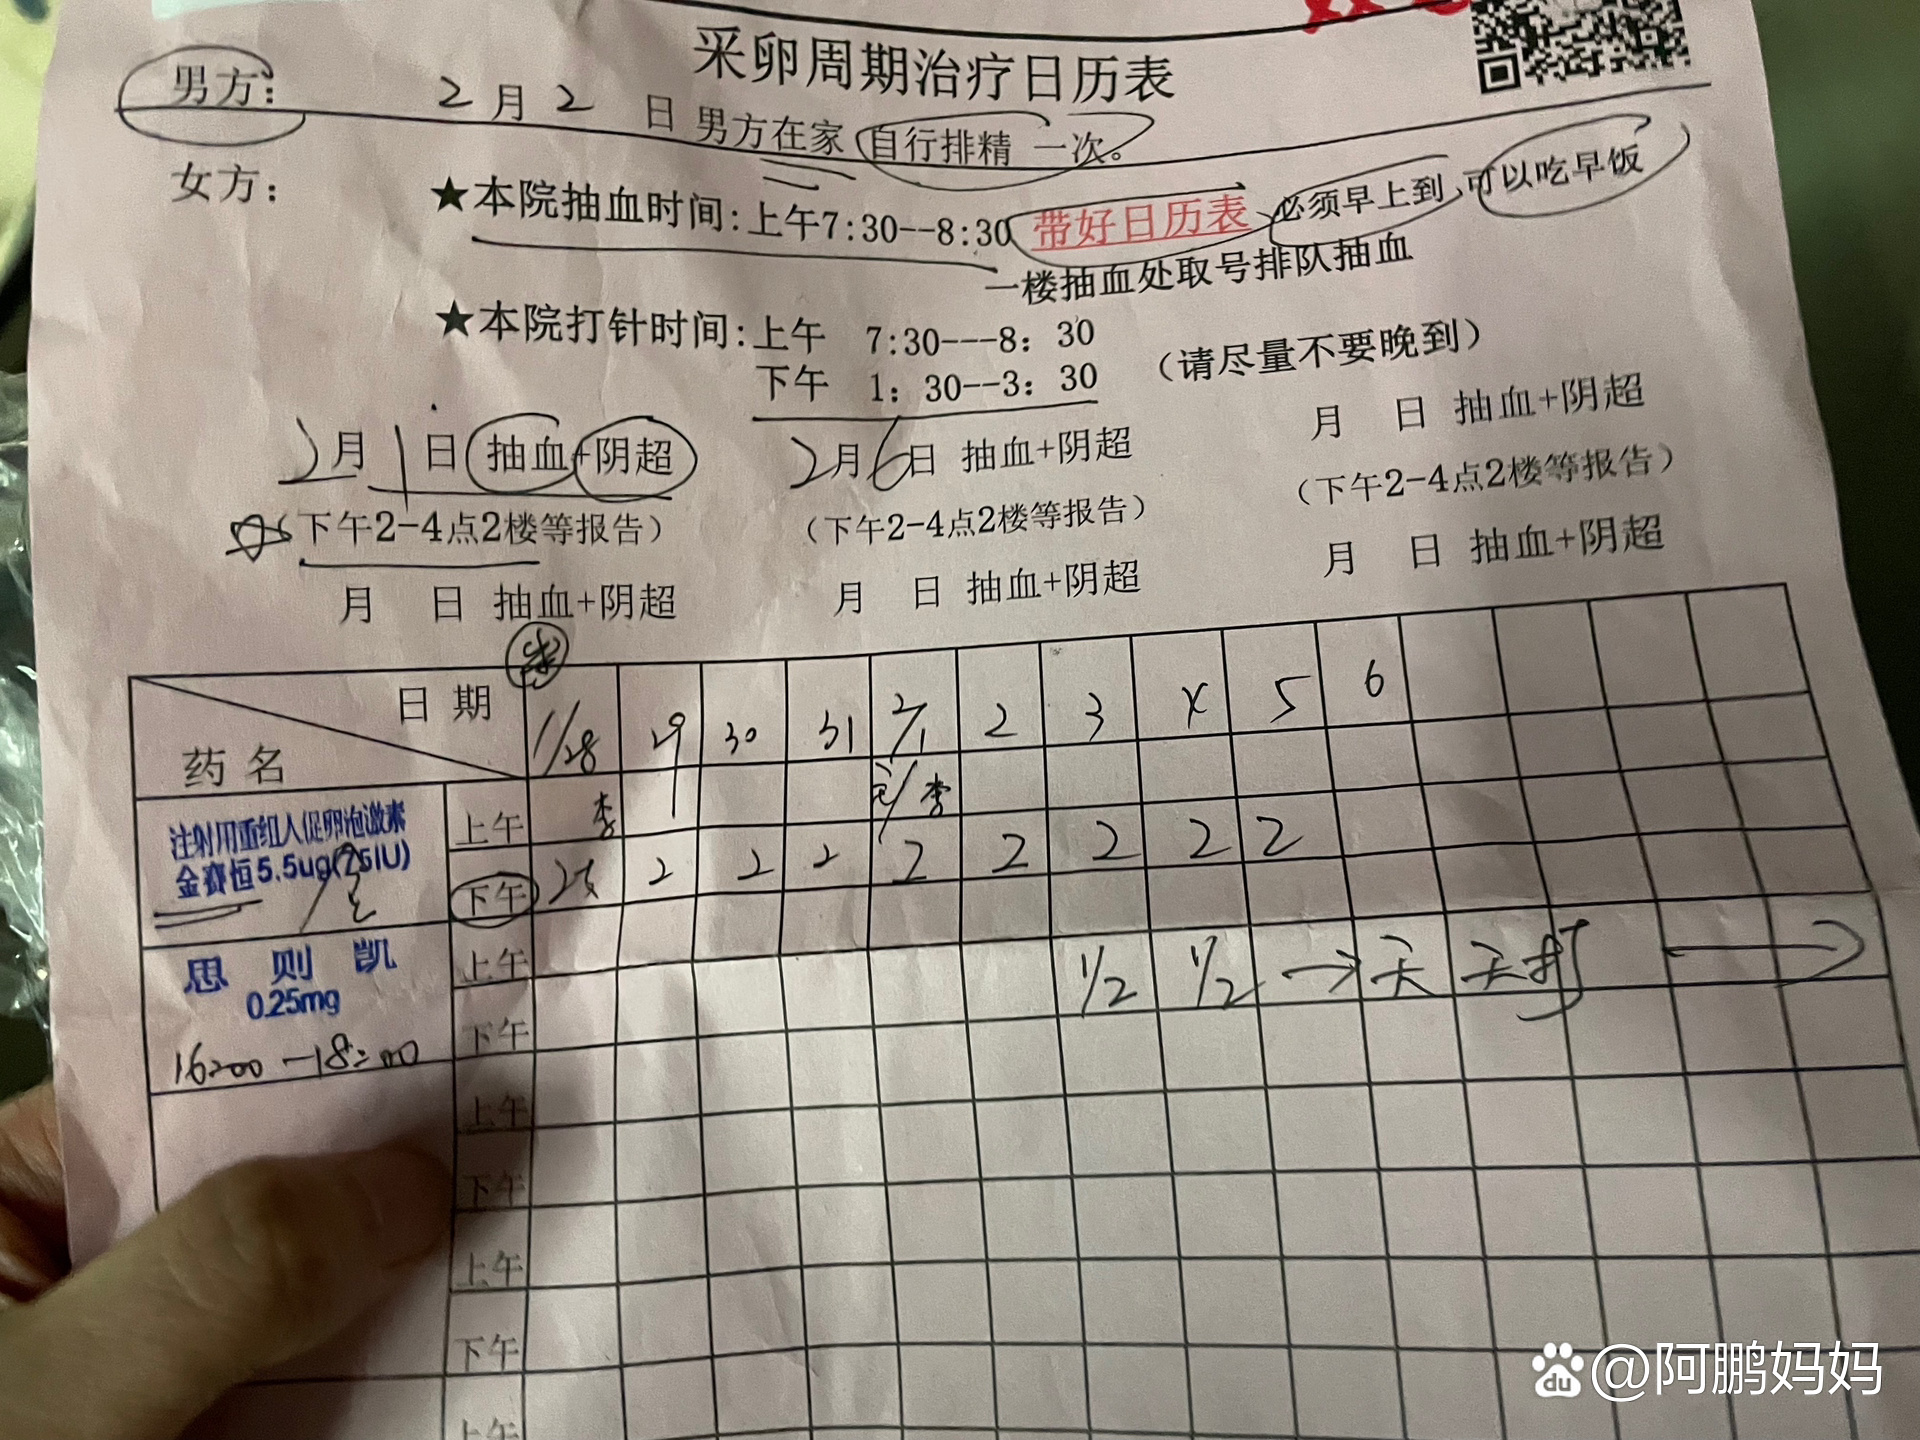 采卵周期治疗日历表
男方： 2月2日 男方在家 自行排精 一次。
女方：
★本院抽血时间:上午7:30--8:30 带好日历表 必须早上到，可以吃早饭
一楼抽血处取号排队抽血
★本院打针时间:上午 7:30---8：30
下午 1：30--3：30 （请尽量不要晚到）
2月1日 抽血+阴超 2月6日 抽血+阴超 月 日 抽血+阴超
（下午2-4点2楼等报告） （下午2-4点2楼等报告） （下午2-4点2楼等报告）
月 日 抽血+阴超 月 日 抽血+阴超 月 日 抽血+阴超
日 期 1/28 29 30 31 2/1 2 3 4 5 6
药 名
注射用重组人促卵泡激素
金赛恒5.5ug(75IU)
上午 李 李
下午 2支 2 2 2 2 2 2 2 2
思 则 凯
0.25mg
16:00－18:00
上午 1/2 1/2 → 天 天打 →
下午
上午
下午
上午
下午
上午
du @阿鹏妈妈